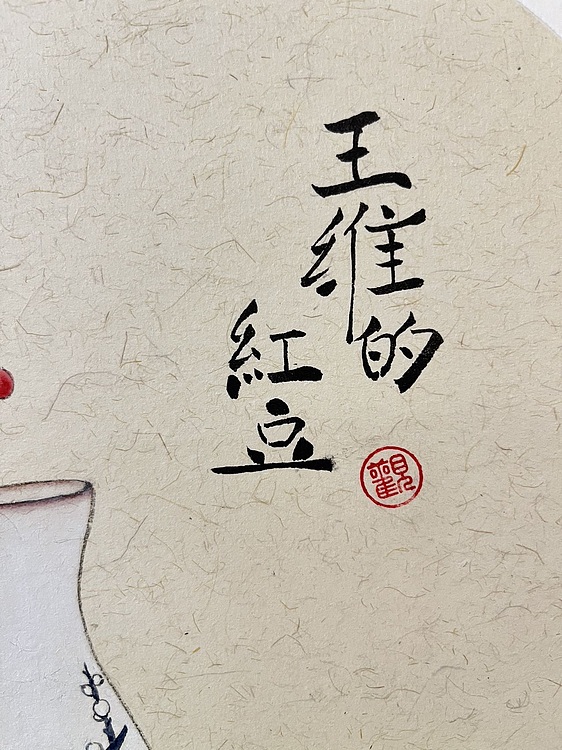 王維的
紅豆
觀